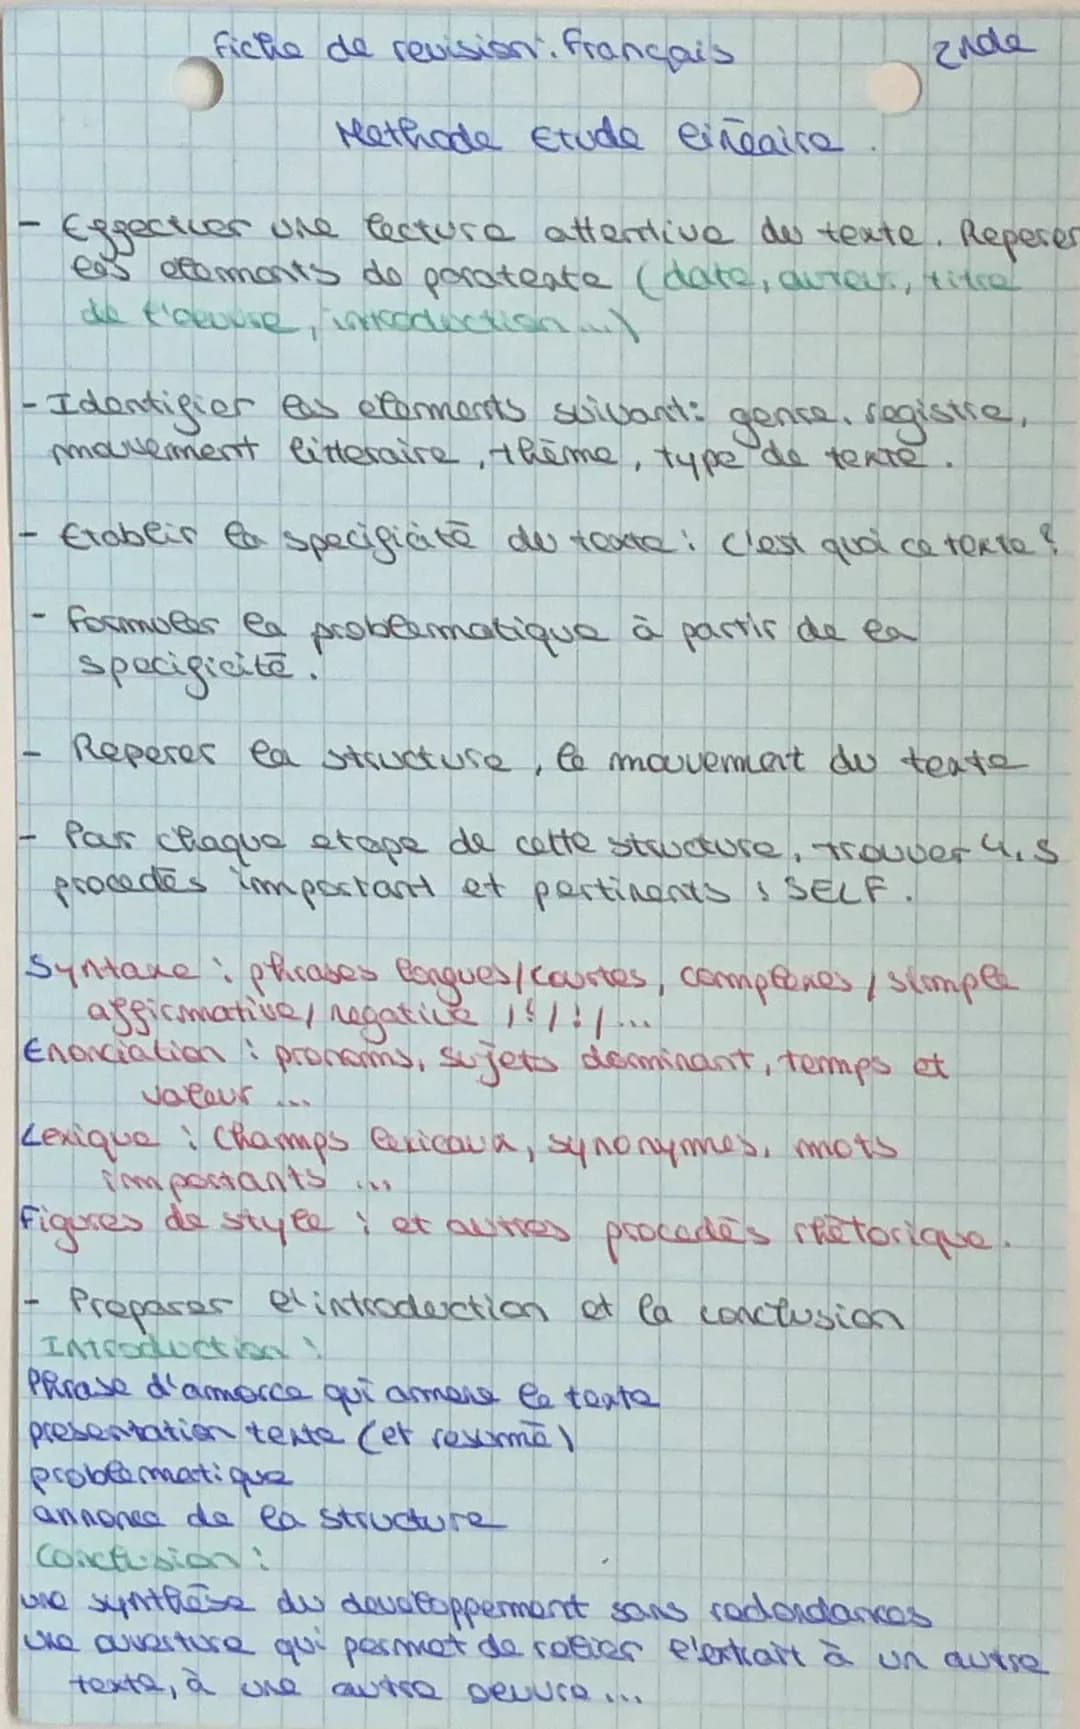 Fiche de revision: Français 2nde
Methode Etude linéaire.
- Effectuer une lecture attentive du texte. Reperer
les elements do paratexte (date, auteur, titre
de l'oeuvre, introduction ...)
- Identifier les elements suivant: genre, registre,
mouvement litteraire, thème, type de texte.
- Etablir la specificité du texte : c'est quoi ce texte ?
- Formuler la problematique à partir de la
specificité.
- Reperer la structure, le mouvement du texte
- Par chaque etape de cette structure, trouver 4, 5
procedés important et pertinents : SELF.
Syntaxe : phrases longues/courtes, complexes / simple
affirmative/ negative /?/!/...
Enonciation : pronoms, sujets dominant, temps et
valeur ...
Lexique : Champs lexicaux, synonymes, mots
importants ...
Figures de style : et autres procedés rhétorique.
- Preparer l'introduction et la conclusion
Introduction :
Phrase d'amorce qui amene le texte
presentation texte (et resumé)
problematique
annonce de la structure
Conclusion :
une synthèse du developpement sans redondances
une ouverture qui permet de relier l'extrait à un autre
texte, à une autre oeuvre ...